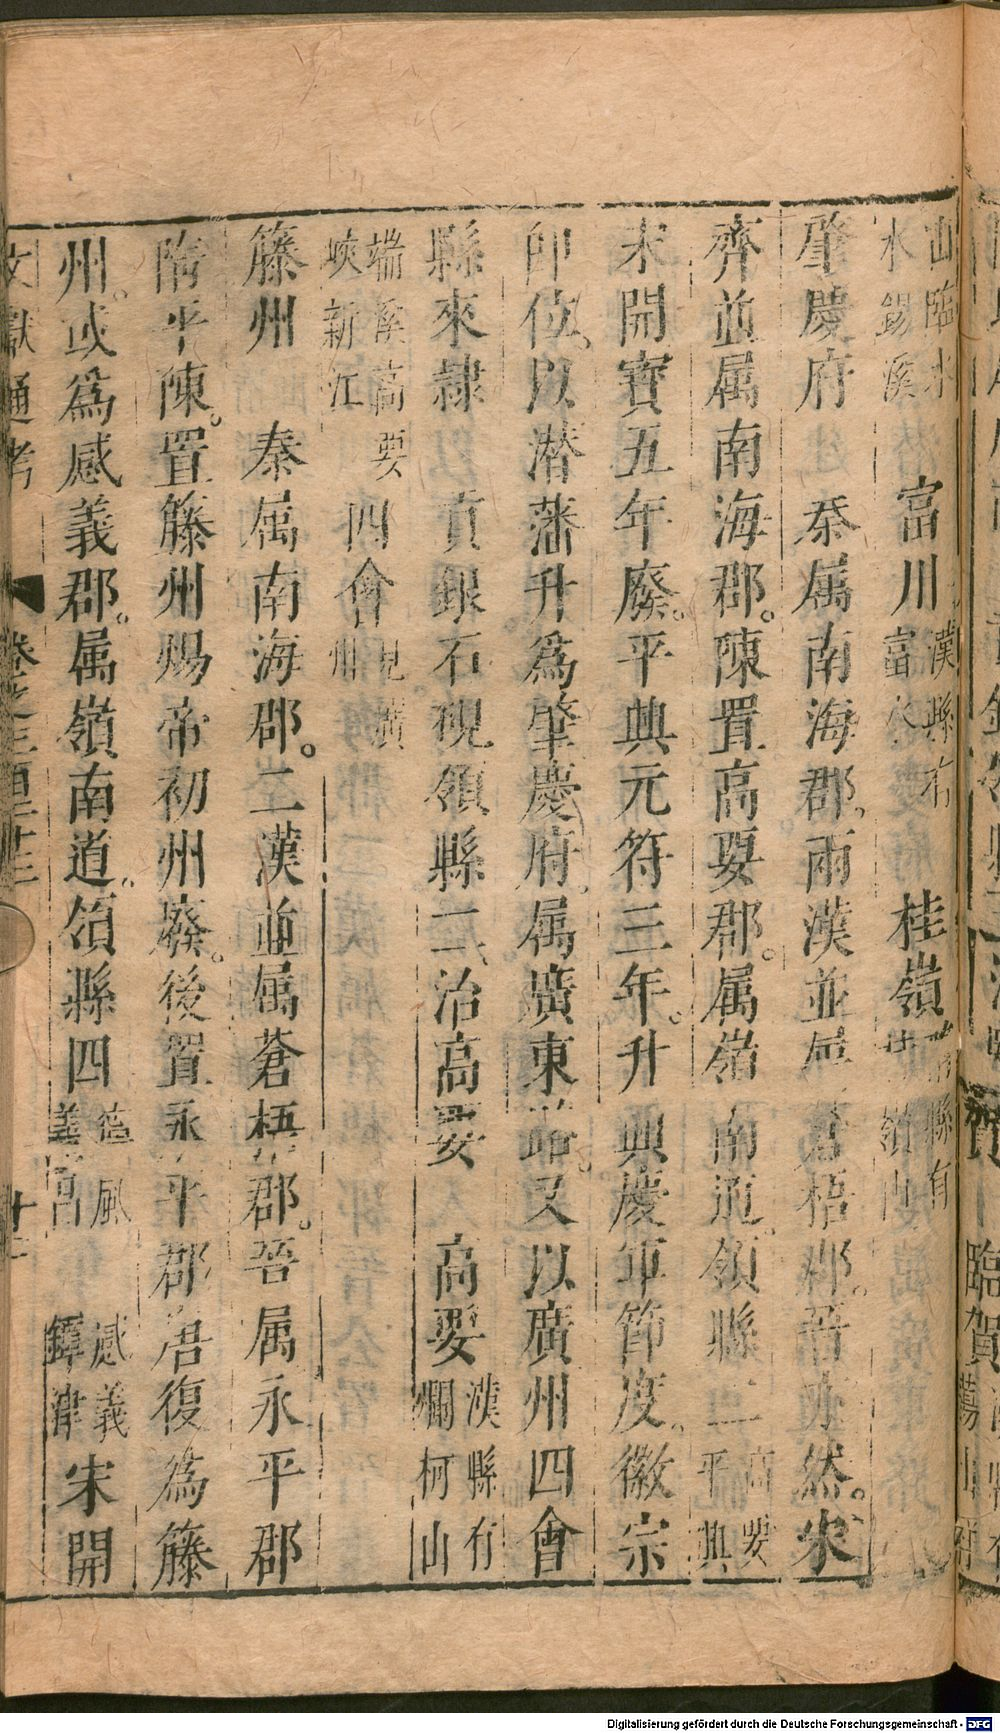 山臨水
水錫溪
富川
漢縣有
富水
桂嶺
縣有
嶺山
肇慶府 秦属南海郡。兩漢並属蒼梧郡。晉亦然。宋
齊並属南海郡。陳置高要郡。属嶺南道。領縣二
高要
平興
宋開寶五年廢。平興元符三年。升興慶軍節度。徽宗
即位。以潜藩升為肇慶府。属廣東路。又以廣州四會
縣來隷 貢銀石硯領縣二治高要 高要
漢縣有
爛柯山
端溪高要
峽新江
四會
見廣
州
籐州 秦属南海郡。二漢並属蒼梧郡。晉属永平郡
隋平陳。置籐州煬帝初州廢。後置永平郡唐復為籐
州。或為感義郡。属嶺南道。領縣四
鐔津
感義
義昌
宋開
文獻通考 卷之三百二十三 十二
臨賀
Digitalisierung gefördert durch die Deutsche Forschungsgemeinschaft - DFG